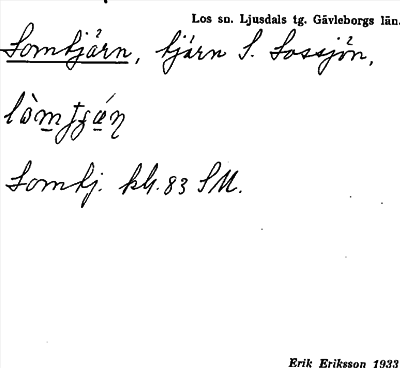 Los sn. Ljusdals tg. Gävleborgs län.
Lomtjärn, tjärn S. Lossjön,
Lomtj. kbl. 83 SV.
Erik Eriksson 1933